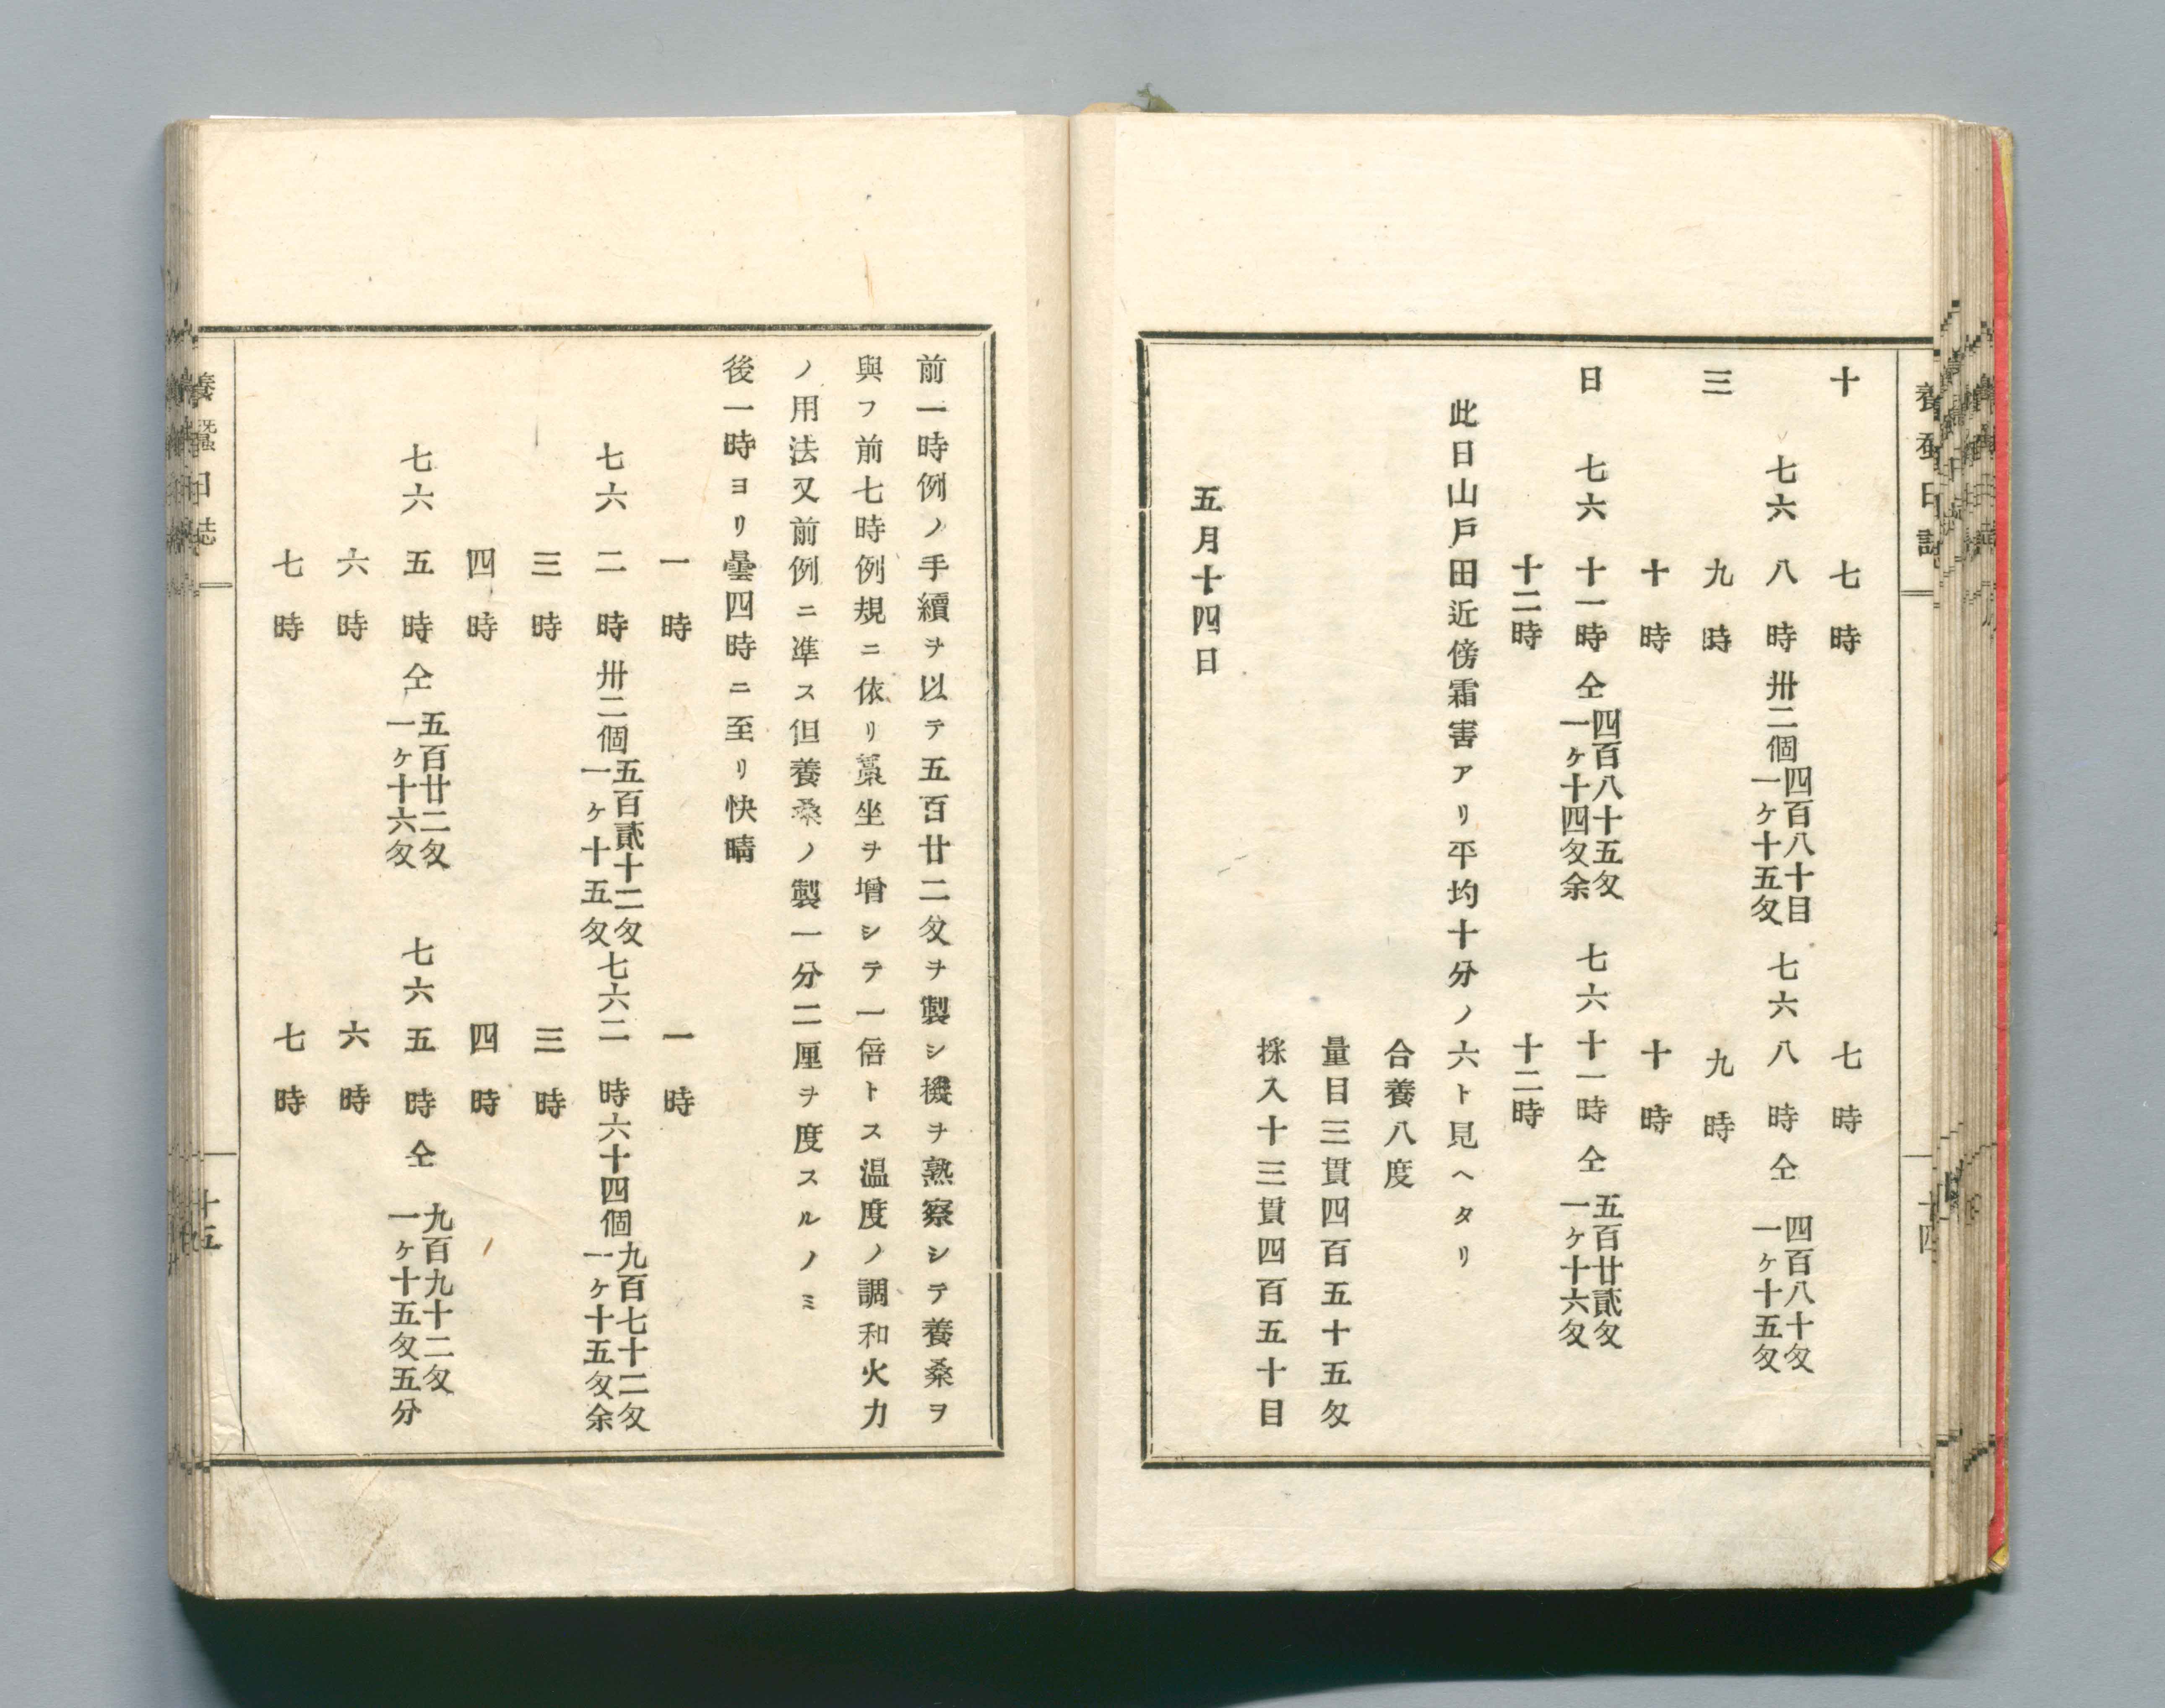 養蚕日誌
十四
十　七時　七時
七六　八時　卅二個　四百八十目　一ヶ十五匁　七六　八時　仝　四百八十匁　一ヶ十五匁
三　九時　九時
十時　十時
日　七六　十一時　仝　四百八十五匁　一ヶ十四匁余　七六　十一時　仝　五百廿貳匁　一ヶ十六匁
十二時　十二時
此日山戶田近傍霜害アリ平均十分ノ六ト見ヘタリ
合養八度
量目三貫四百五十五匁
採入十三貫四百五十目
五月十四日
前一時例ノ手續ヲ以テ五百廿二匁ヲ製シ機ヲ熟察シテ養桑ヲ
與フ前七時例規ニ依リ藁坐ヲ增シテ一倍トス温度ノ調和火力
ノ用法又前例ニ準ス但養桑ノ製一分二厘ヲ度スルノミ
後一時ヨリ曇四時ニ至リ快晴
一時　一時
七六　二時　卅二個　五百貳十二匁　一ヶ十五匁　七六　二時　六十四個　九百七十二匁　一ヶ十五匁余
三時　三時
四時　四時
七六　五時　仝　五百廿二匁　一ヶ十六匁　七六　五時　仝　九百九十二匁　一ヶ十五匁五分
六時　六時
七時　七時
養蠶日誌
十五